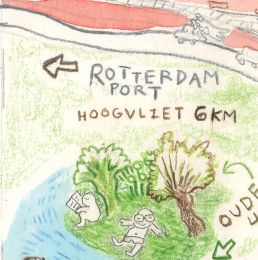 ROTTERDAM
PORT
HOOGVLIET 6KM
OUDE